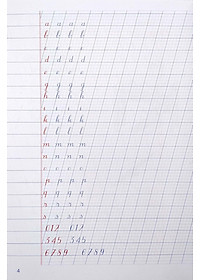 a a a a
b b b b
d d d d
e e e e
g g g g
h h h h
i i i i
k k k k
l l l l
m m m m
n n n n
p p p p
q q q q
s s s s
012 012
345 345
6789 6789
4